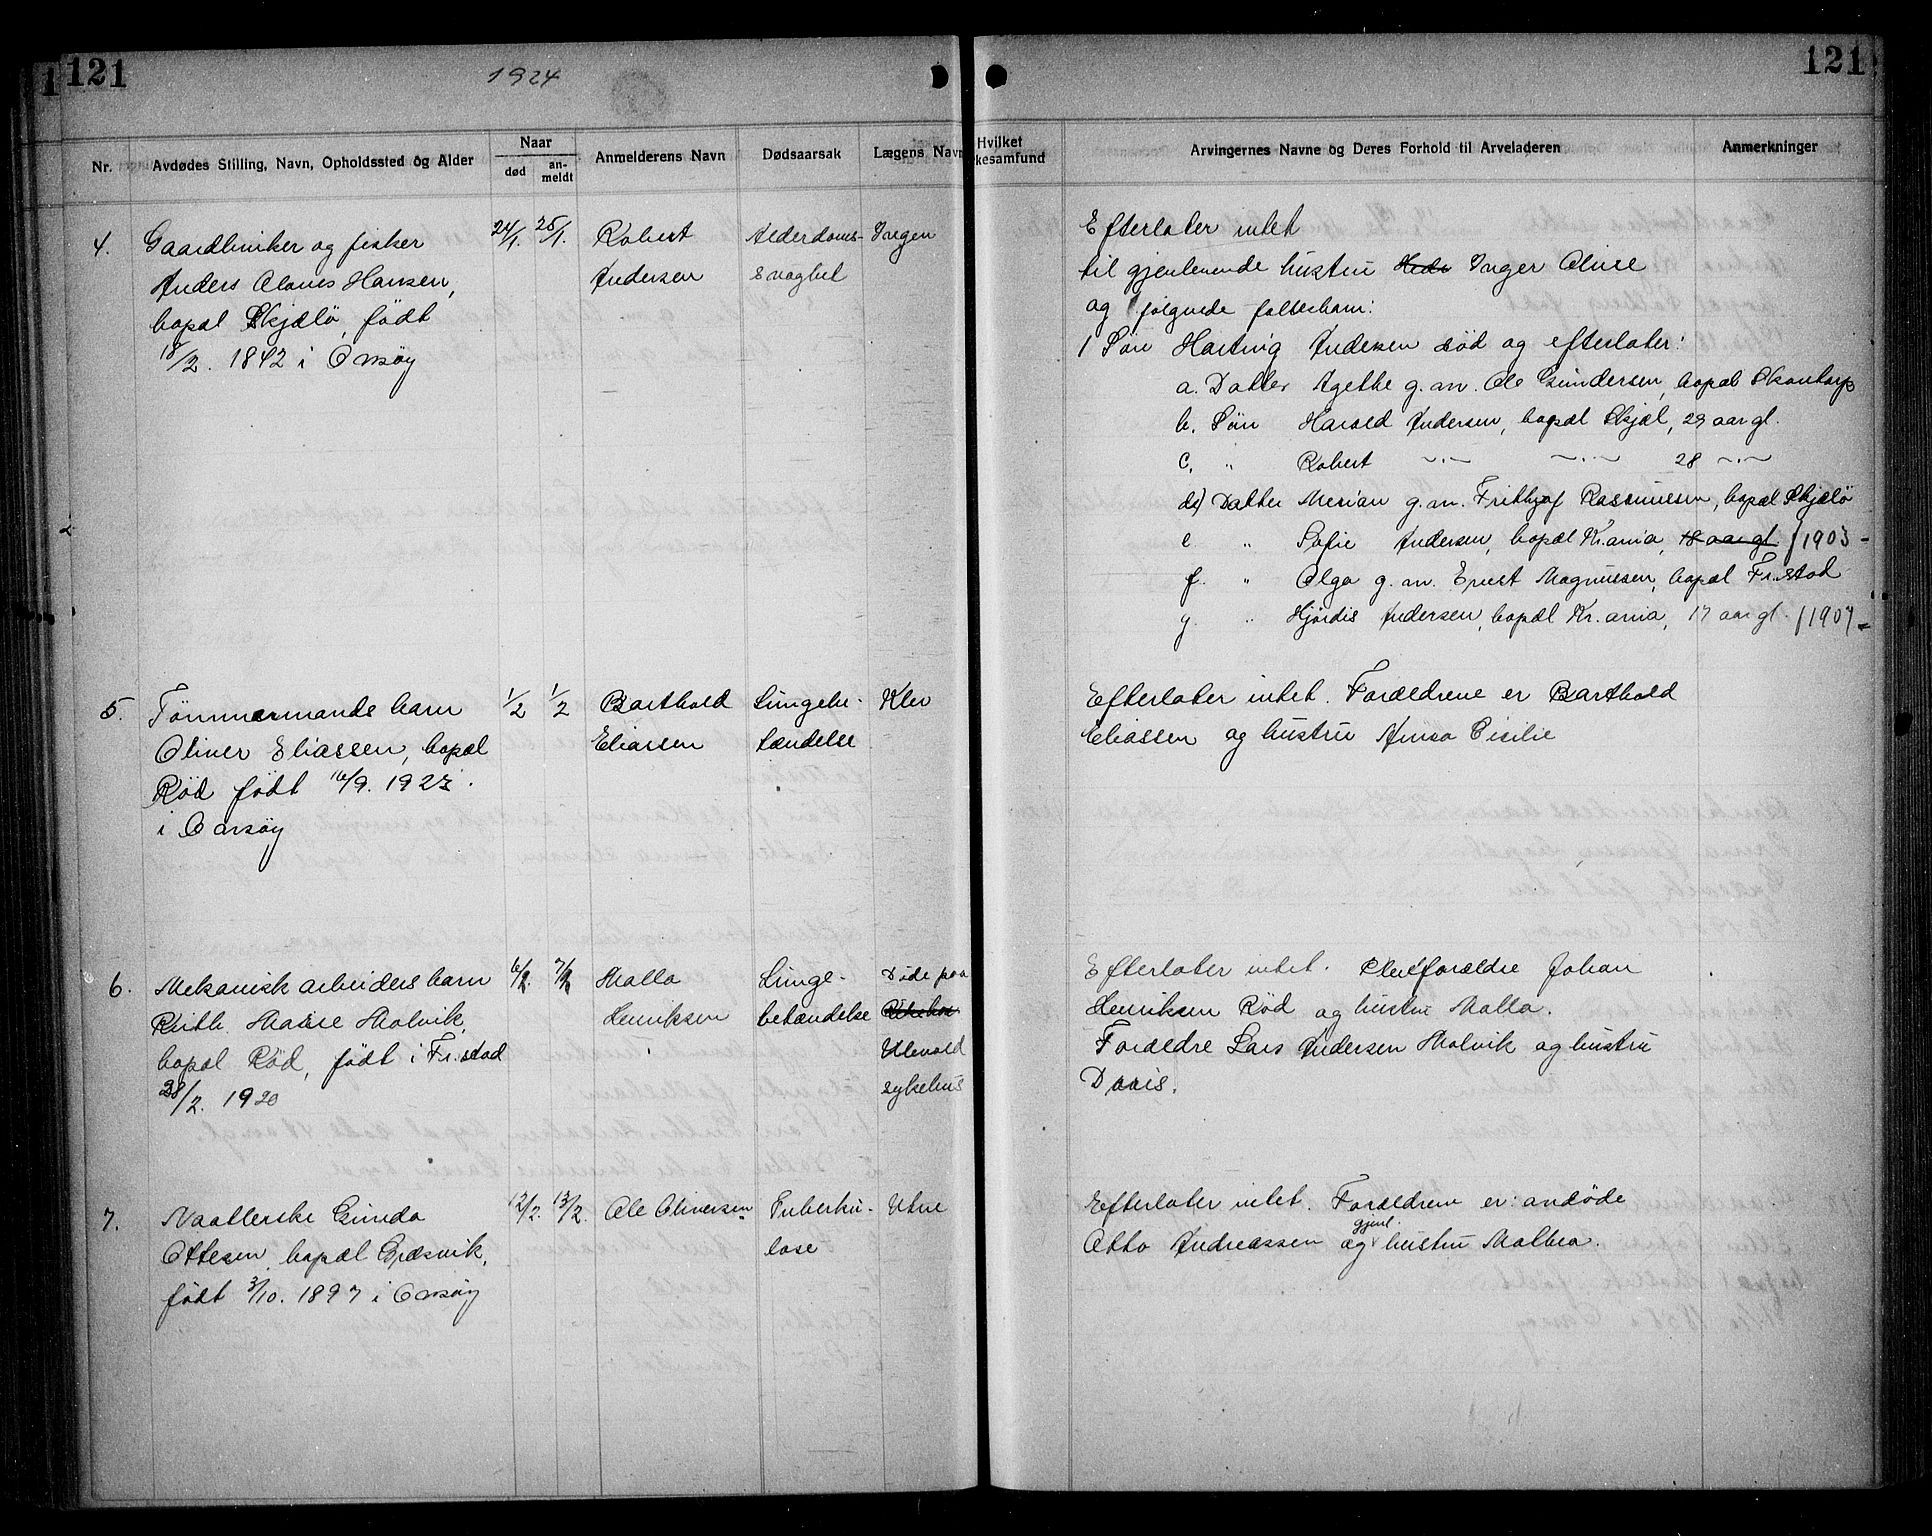 121
1924
121
Nr.
Avdødes Stilling, Navn, Opholdssted og Alder
Naar
død
an-
meldt
Anmelderens Navn
Dødsaarsak
Lægens Navn
Hvilket
kesamfund
Arvingernes Navne og Deres Forhold til Arveladeren
Anmerkninger
4. Gaardbruker og fisker
Anders Hansen,
bopæl Skjælø, født
18/2. 1842 i Onsøy
24/1. 25/1.
Robert
Andersen
Alderdoms-
svaghet
Ingen
Efterlater intet
til gjenlevende hustru Inger Oline
og følgende fællesbarn:
1 Søn Hartvig Andersen død og efterlater:
a. Datter Agethe g.m. Ole Gundersen, bopæl Skontorp
b. Søn Harald Andersen, bopæl Skjæl, 29 aar gl.
c. " Robert -"- -"- 28 -"-
d) Datter Merian g.m. Frithjof Rasmussen, bopæl Skjælø
e. " Sofie Andersen, bopæl Kr.ania, 18 aar gl. f 1903 -
f. " Olga g.m. Ernst Magnussen, bopæl Fr.stad
g. " Hjørdis Andersen, bopæl Kr.ania, 17 aar gl. f 1907 -
5. Tømmermands barn
Oliver Eliassen, bopæl
Rød født 16/9. 1923.
i Onsøy
1/2 1/2
Barthold
Eliassen
Lungebe-
tændelse
Klev
Efterlater intet. Forældrene er Barthold
Eliassen og hustru Anna Cicilie
6. Mekanisk arbeiders barn
Ruth Marie Molvik,
bopæl Rød, født i Fr.stad
28/2. 1920
6/2. 7/2
Malla
Henriksen
Lunge-
betændelse
Døde paa
Ulevold
sykehus
Efterlater intet. Pleieforældre Johan
Henriksen Rød og hustru Malla.
Forældre Lars Andersen Molvik og hustru
Doris.
7. Naatlerske Gunda
Ottesen, bopæl Græsvik,
født 3/10. 1897 i Onsøy
12/2. 13/2.
Ole Oliversen
Tuberku-
lose
Utne
Efterlater intet. Forældrene er: avdøde
Otto Andreassen og gjenl. hustru Mathea.